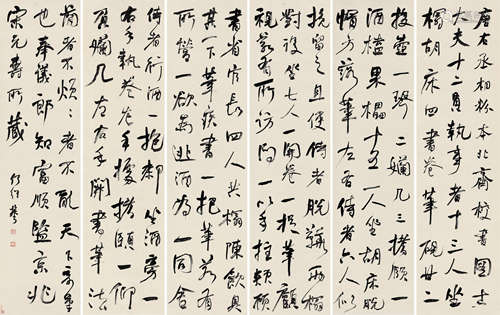 唐右丞相粉本北齊校書圖士
大夫十二員執事者十三人坐
榻胡床四書卷筆硯廿二
投壺一琴二嬾几三搘頤一
酒榼果櫑十五一人坐胡床脫
帽方落筆左右侍者六人似
挽留之且使侍者脫鞾兩榻
對設坐七人一開卷一捉筆顧
視若有問一以手拄頰顧
書省官長四人共榻陳飲具
其一下筆疾書一把筆若有
所營一欲逃酒為一同舍
侍者行酒一抱膝坐酒旁一
右手執卷左手據搘頤一仰
負嬾几左右手開書筆法
簡者不煩者不亂天下奇筆
也奉議郎知富順監京兆
宋元壽所藏
何紹基